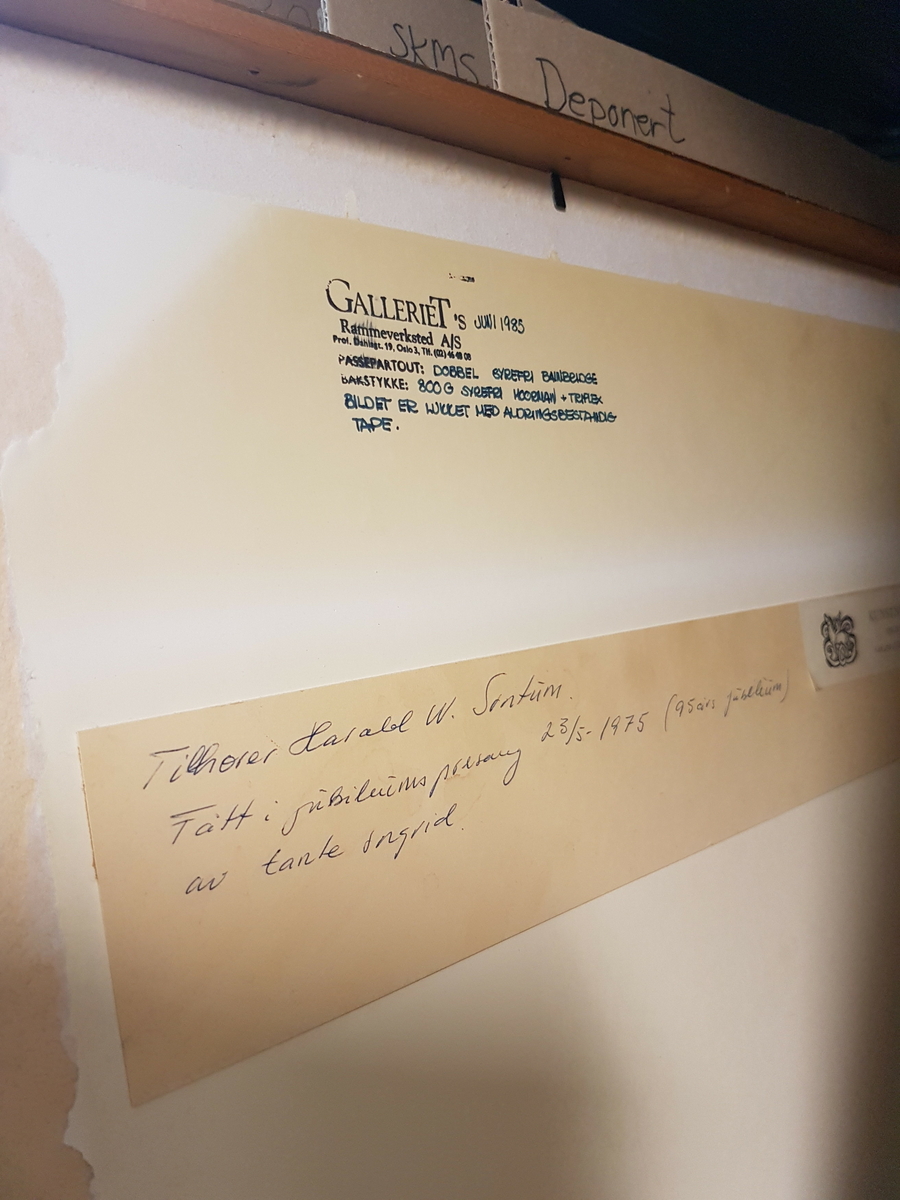 SKMS
Deponert
GALLERIET 'S JUNI 1985
Rammeverksted A/S
Prof. Dahlsgt. 19, Oslo 3, Tlf. (02) 46
PASSEPARTOUT: DOBBEL SYREFRI BAINBRIDGE
BAKSTYKKE: 800 G SYREFRI + TRIPLEX
BILDET ER MED ALDRINGSBESTANDIG
TAPE.
Tilhører Harald W.
Fått i jubileums presang 23/5-1975 (95 års jubileum)
av tante Ingrid.